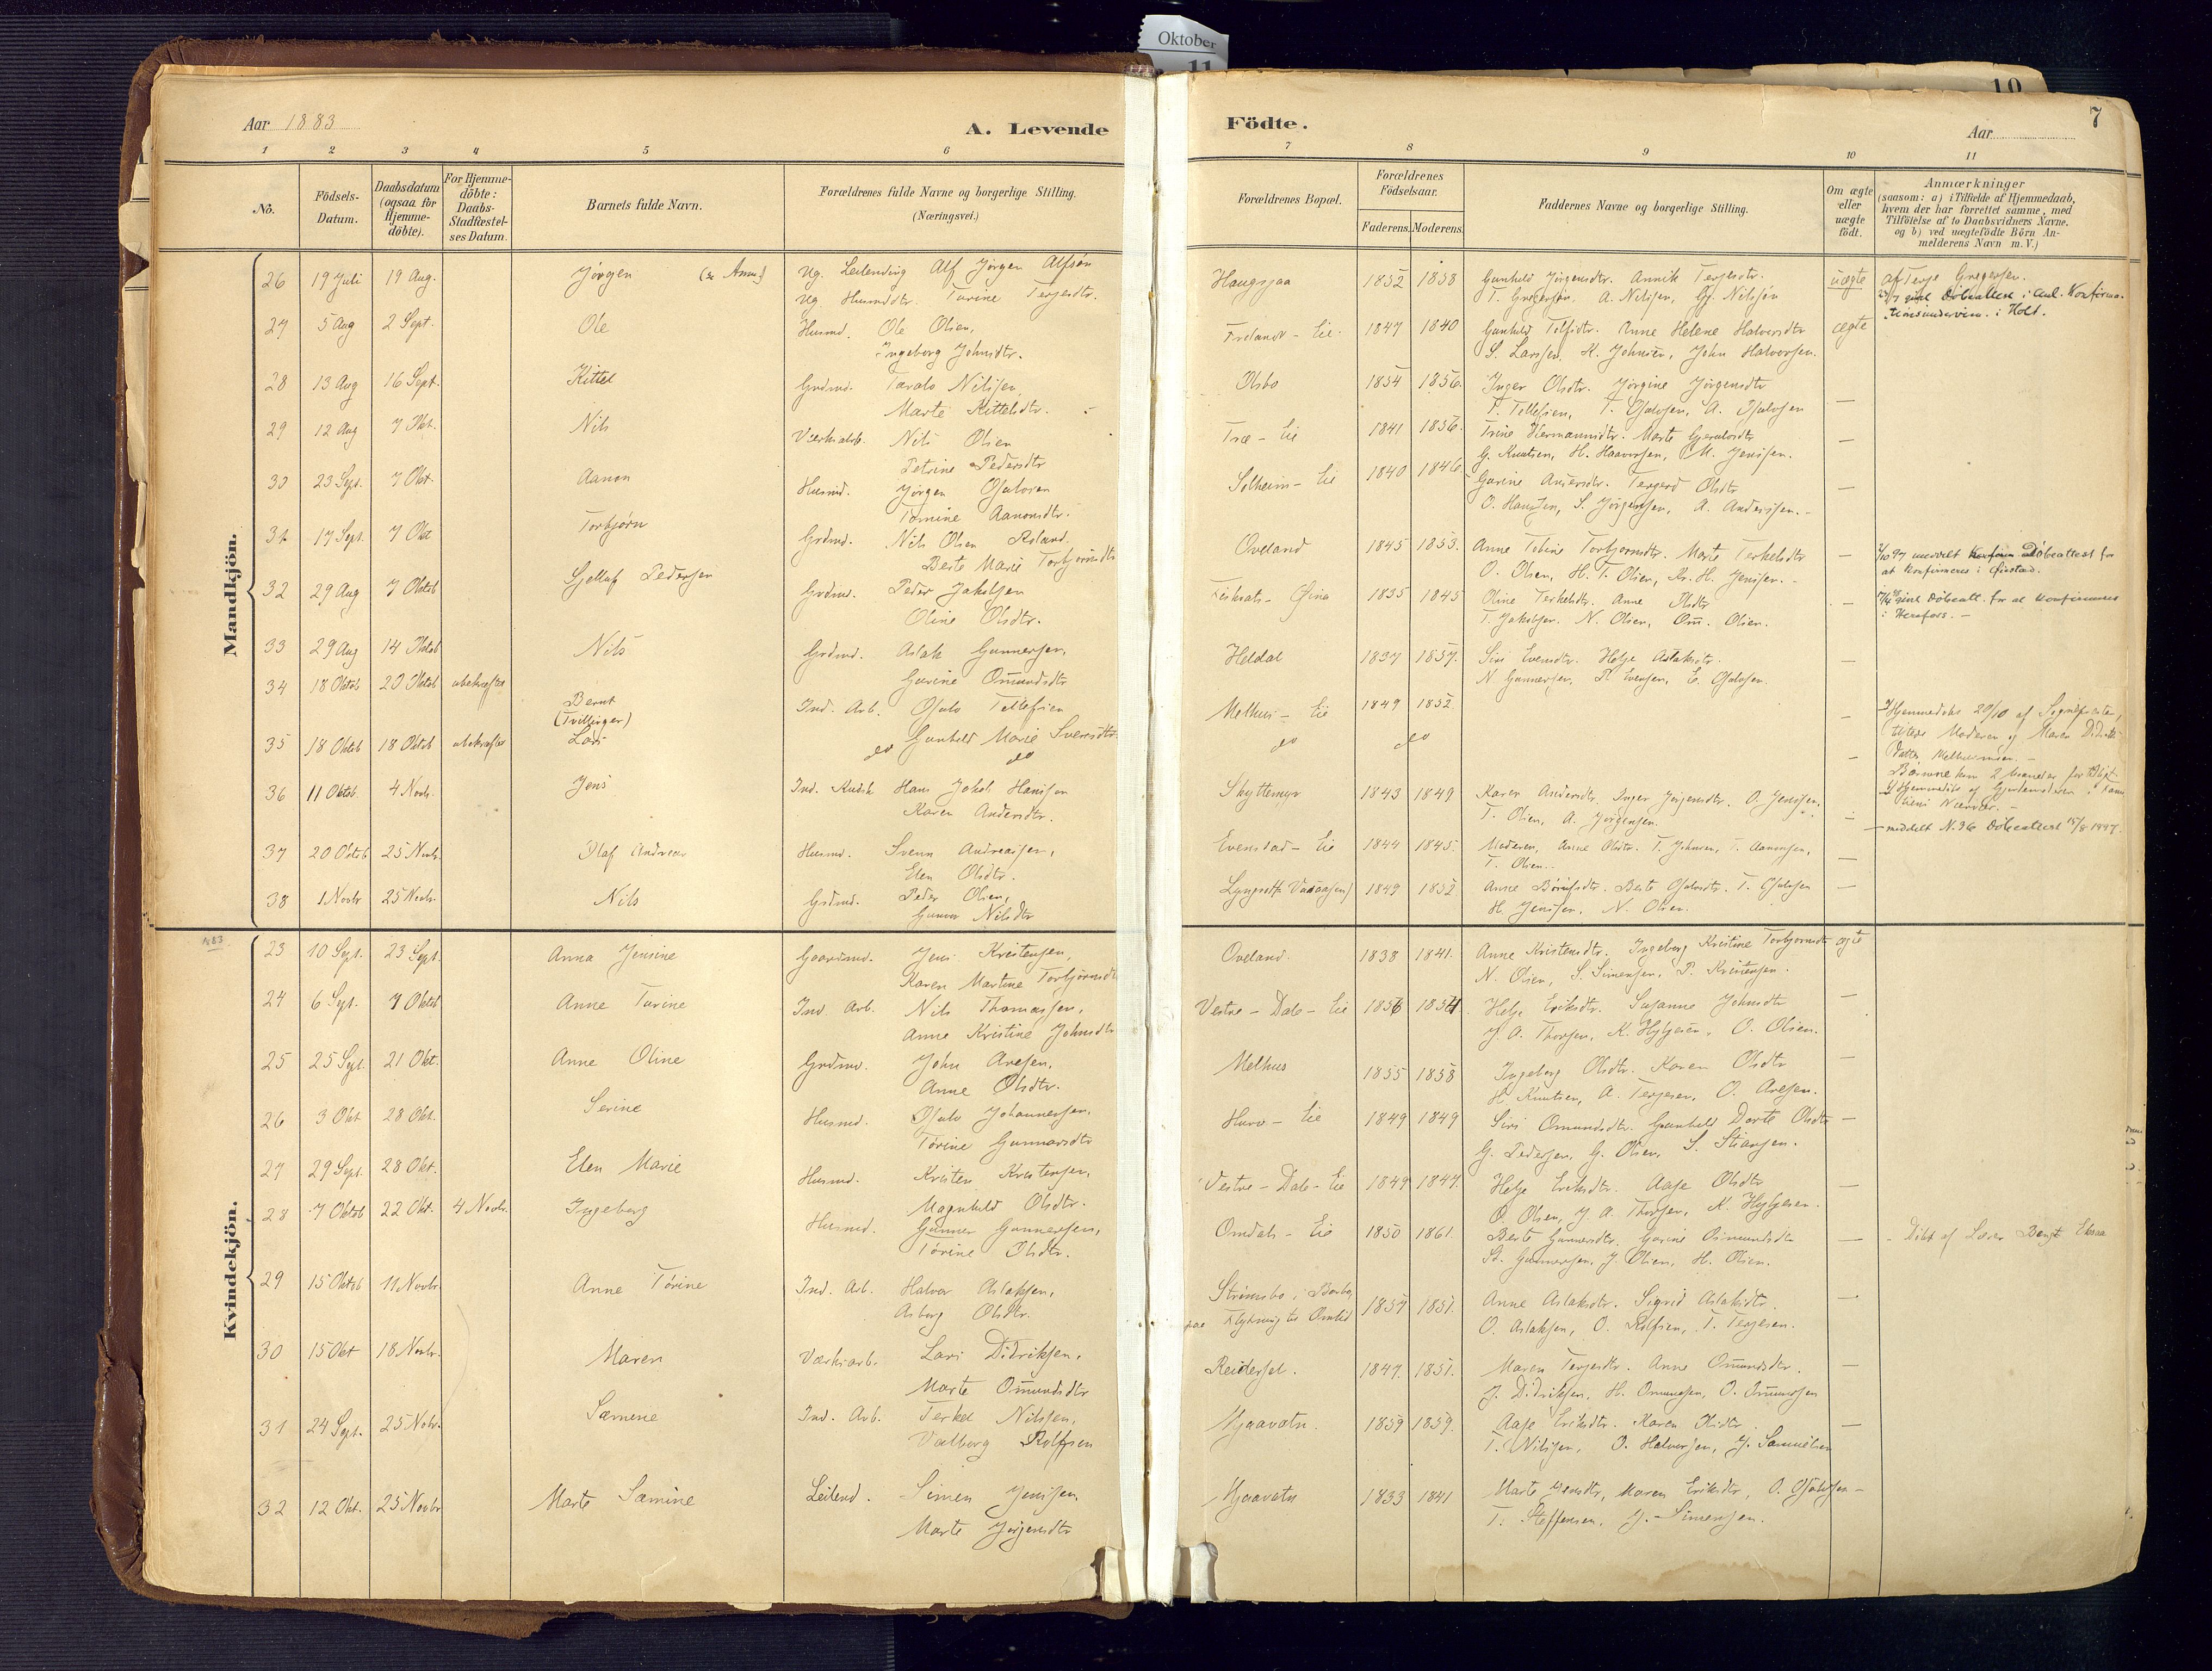 Oktober
11
10
7
Aar 1883
A. Levende
Födte.
Aar
1 2 3 4 5 6 7 8 9 10 11
No.
Födsels-Datum.
Daabsdatum (ogsaa for Hjemme-döbte).
For Hjemme-döbte: Daabs-Stadfæstel-ses Datum.
Barnets fulde Navn.
Forældrenes fulde Navne og borgerlige Stilling.
(Næringsvei.)
Forældrenes Bopæl.
Forældrenes Födselsaar.
Faderens. Moderens.
Faddernes Navne og borgerlige Stilling.
Om ægte eller uægte født.
Anmærkninger
(saasom: a) i Tilfælde af Hjemmedaab,
hvem der har forrettet samme, med
Tilföielse af to Daabsvidners Navne,
og b) ved uægtefödte Börn An-
melderens Navn m. V.)
Mandkjön.
26 19 Juli 19 Aug. Jörgen Ug. Leilending Alf Jörgen Alfsen Haugsjaa 1852 1858 Gunhild Jörgensdtr. Annik Terjesdtr. uægte af Terje Gregersen.
Ug. Husmdtr. Turine Terjesdtr. T. Gregersen, A. Nilsen, G. Nilsen
Döbeattest i Konfirma-
tionsundervisn. i Holt.
27 5 Aug 2 Sept. Ole Husmd. Ole Olsen, Eie 1847 1840 Anne Helene Halvorsdtr ægte
Ingeborg Johnsdtr. S. Larsen, K. Johnsen, John Halvorsen.
28 13 Aug 16 Sept. Kittel Grdmd. Tarald Nilsen Olsbo 1854 1856. Inger Olsdtr. Jörgine Jörgensdtr —
Marte Kittelsdtr. T. Tellefsen, T. Osulvsen, A. Osulvsen
29 12 Aug 7 Okt. Nils Værksarb. Nils Olsen Træ - Eie 1841 1856. Trine Hermannsdtr. Marte —
Petrine Pedersdtr G. Knutsen, H. Haavorsen, M. Jensen.
30 23 Sept. 7 Okt. Aanon Husmd. Jörgen Osulvsen Solheim - Eie 1840 1846. Olsdtr —
Tomine Aanonsdtr. O. Hansen, S. Jörgensen, A. Andersen.
31 17 Sept. 7 Okt Torbjörn Grdmd. Nils Olsen Oveland 1845 1853. Anne Tobine Torbjørnsdtr. Marte Terkelsdtr — meddelt Döbeattest for
Berte Marie Torbjörnsdtr O. Olsen, H. T. Olsen, H. Jensen. at konfirmeres i
32 29 Aug 7 Oktob Gjellaf Pedersen Grdmd. Peder Jakobsen 1835 1845 Oline Terkelsdtr. Anne Olsdtr — Döbeatt. for at konfirmeres
Oline Olsdtr. T. Jakobsen. N. Olsen, Om. Olsen. i Herefoss.
33 29 Aug 14 Oktob Nils Grdmd. Aslak Gunnersen, Heldal 1837 1837. Siri Evensdtr. Helje Aslaksdtr. —
Gurine Omundsdtr N. Gunnersen, P. Evensen, E. Osulvsen.
34 18 Oktob 20 Oktob ubekræftet Bernt (Tvillinger) Ind. Arb. Osulv Tellefsen Melhus - Eie 1849 1852. — Hjemmedöbt 20/10 af
Gunhild Marie Sveresdtr. Moderen og Maren
35 18 Oktob 18 Oktob ubekræftet Lars do do do do —
Börnene kun 2 Maaneder
36 11 Oktob. 4 Novbr. Jens Ind. Hans Jakob Hansen Skyttemyr 1843 1849 Karen Andersdtr. Inger Jörgensdtr. O. Jensen,
Karen Andersdtr. T. Olsen, A. Jörgensen.
meddelt N. 36 Döbeattest 15/8 1897.
37 20 Oktob 25 Novbr. Olaf Andreas Husmd. Svenn Andreassen, Evenstad - Eie 1844 1845. Moderen, Anne Olsdtr. T. Johnsen, T. Aanonsen, —
Elen Olsdtr. T. Olsen.
38 1 Novbr 25 Novbr. Nils Grdmd. Peder Olsen, 1849 1852 Berte Osulvsdtr. T. Osulvsen —
Gunvor Nilsdtr H. Jensen, N. Olsen.
1883
Kvindekjön.
23 10 Sept. 23 Sept. Anna Jensine Gaardmd. Jens Kristensen, Oveland. 1838 1841. Anne Kristensdtr. Ingeborg Kristine Torbjørnsdtr ægte
Karen Martine Torbjörnsdtr N. Olsen, S. Simensen, P. Kristensen.
24 6 Sept. 7 Oktob Anne Turine Ind. Arb. Nils Thomassen, Vestre - Dale - Eie 1856 1854. Helje Eriksdtr. Susanne Johnsdtr —
Anne Kristine Johnsdtr J. A. Thorsen, K. O. Olsen.
25 25 Sept. 21 Okt. Anne Oline Grdmd. John Aresen, Melhus 1855 1858 Ingeborg Olsdtr. Karen Olsdtr —
Anne Olsdtr. H. Knutsen, A. Terjesen, O. Aresen.
26 3 Okt 28 Okt. Serine Husmd. Osulv Johannessen, Eie 1849 1849 Siri Omundsdtr. Gunhild Dorte Olsdtr —
Törine Gunnarsdtr G. Pedersen, G. Olsen, S. Stiansen.
27 29 Sept. 28 Okt. Elen Marie Husmd. Kristen Kristensen, Vestre - Dale - Eie 1849 1847. Helje Eriksdtr. Aase Olsdtr —
Magnhild Olsdtr. O. Olsen, J. A. Thorsen, K.
28 7 Oktob 22 Okt. 4 Novbr. Ingeborg Husmd. Gunner Gunnersen, Omdals - Eie 1850 1861. Berte Gunnersdtr. Gurine Omundsdtr — Döbt af Lærer Bengt
Törine Olsdtr. Gunnersen, J. Olsen, H. Olsen.
29 15 Oktob 11 Novbr. Anne Törine Ind. Arb. Halvor Aslaksen, Strömsbo i 1857 1851. Anne Aslaksdtr. Sigrid Aslaksdtr. —
Asborg Olsdtr. paa Flytning til O. Aslaksen, O. Rolfsen, T. Terjesen.
30 15 Okt 18 Novbr. Maren Værksarb. Lars Didriksen, Reidersel. 1847. 1851. Maren Terjesdtr. Anne Omundsdtr. —
Marte Omundsdtr J. Didriksen, H. Omundsen, O. Omundsen
31 24 Sept. 25 Novbr. Samene Ind. Arb. Terkel Nilssen, Mjaavatn 1859 1859. Aase Eriksdtr. Karen Olsdtr —
Valborg Rolfsen T. Nilsen, O. Halvorsen, J. Samuelsen
32 12 Okt. 25 Novbr Marte Samine Leilend. Simen Jensen, Mjaavatn 1833 1841 Marte Jensdtr, Maren Eriksdtr, O. Osulvsen —
Marte Jörgensdtr T. Steffensen, J. Simensen.